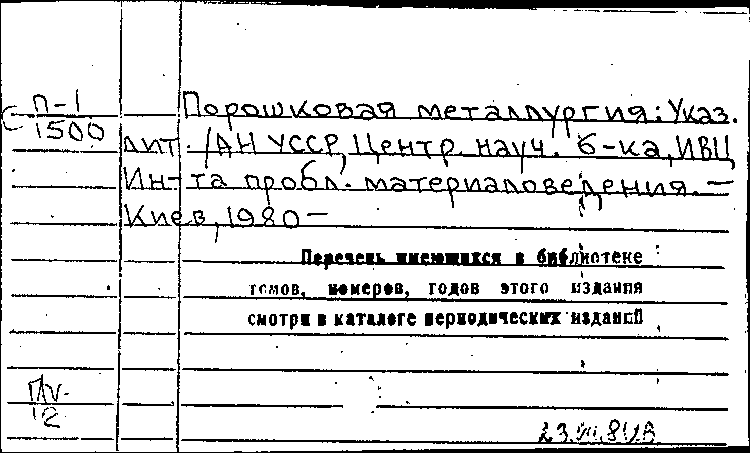 С П-1
1500
Порошковая металлургия: Указ.
лит. /АН УССР, Центр. науч. б-ка, ИВЦ
Ин-та пробл. материаловедения. –
Киев, 1980 –
Перечень имеющихся в библиотеке
томов, номеров, годов этого издания
смотри в каталоге периодических изданий